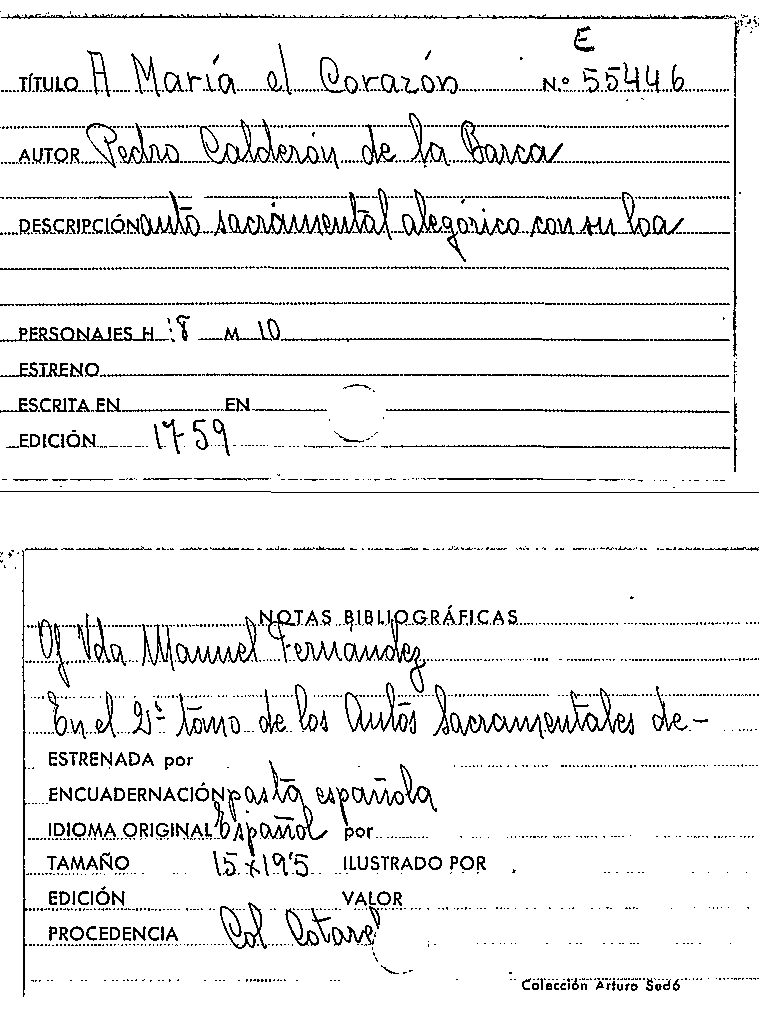 E
TÍTULO A María el Corazón N.º 55446
AUTOR Pedro Calderón de la Barca
DESCRIPCIÓN auto sacramental alegórico con su loa
PERSONAJES H 8 M 10
ESTRENO
ESCRITA EN EN
EDICIÓN 1759
NOTAS BIBLIOGRÁFICAS
Of Vda Manuel Fernández
En el 2º tomo de los Autos Sacramentales de-
ESTRENADA por
ENCUADERNACIÓN pasta española
IDIOMA ORIGINAL Español por
TAMAÑO 15x19'5 ILUSTRADO POR
EDICIÓN VALOR
PROCEDENCIA Col Cotarel
Colección Arturo Sedó